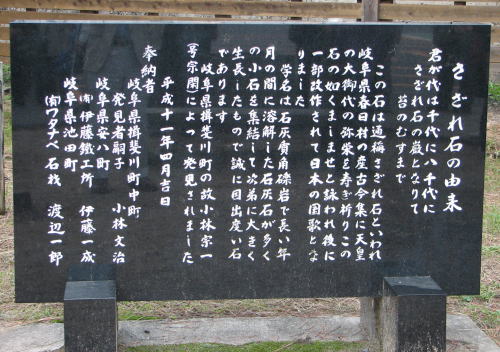 さざれ石の由来
君が代は千代に八千代に
さざれ石の巌となりて
苔のむすまで
この石は通称さざれ石といわれ
岐阜県春日村の産古今集に天皇
の大御代の弥栄を寿ぎ祈りこの
石の如くましませと詠われ後に
一部改作されて日本の国歌とな
りました
学名は石灰質角礫岩で長い年
月の間に溶解した石灰石が多く
の小石を集結して次第に大きく
生長したもので誠に目出度い石
であります
岐阜県揖斐川町の故小林宗一
(号宗閑)によって発見されました
平成十一年四月吉日
奉納者
岐阜県揖斐川町中町
発見者嗣子 小林文治
岐阜県安八町
(有)伊藤鐵工所 伊藤一成
岐阜県池田町
(有)ワタナベ石材 渡辺一郎